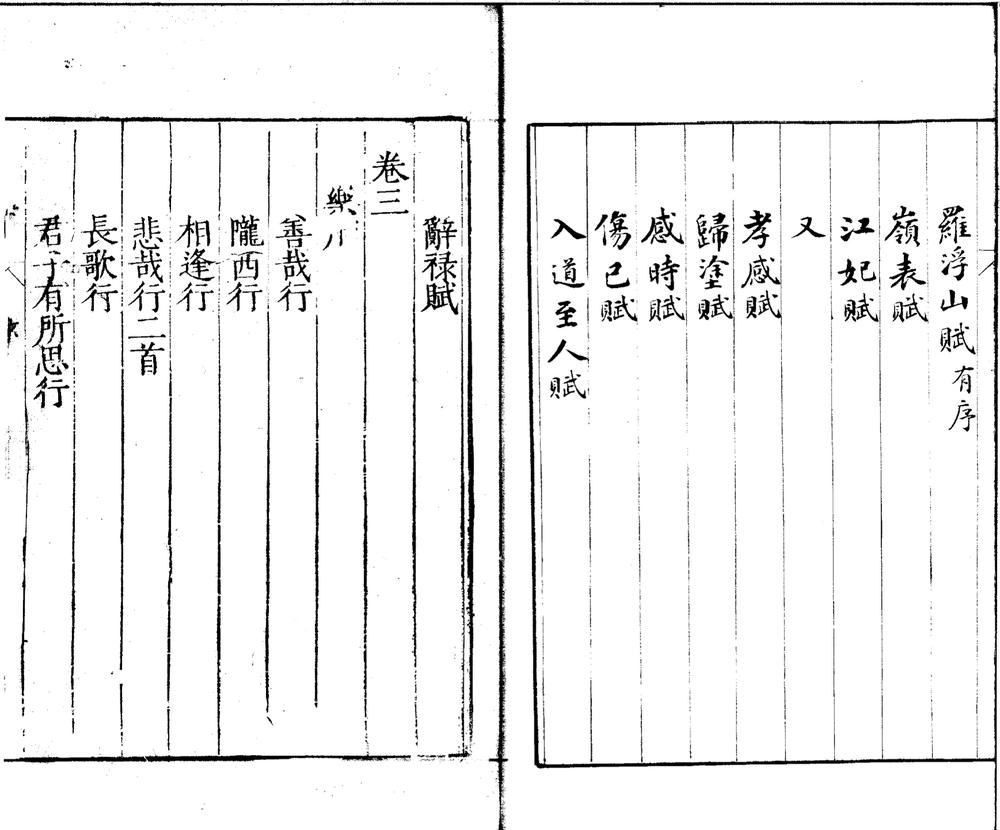 羅浮山賦有序
嶺表賦
江妃賦
又
孝感賦
歸塗賦
感時賦
傷己賦
入道至人賦
辭禄賦
卷三
樂
善哉行
隴西行
相逢行
悲哉行二首
長歌行
君子有所思行